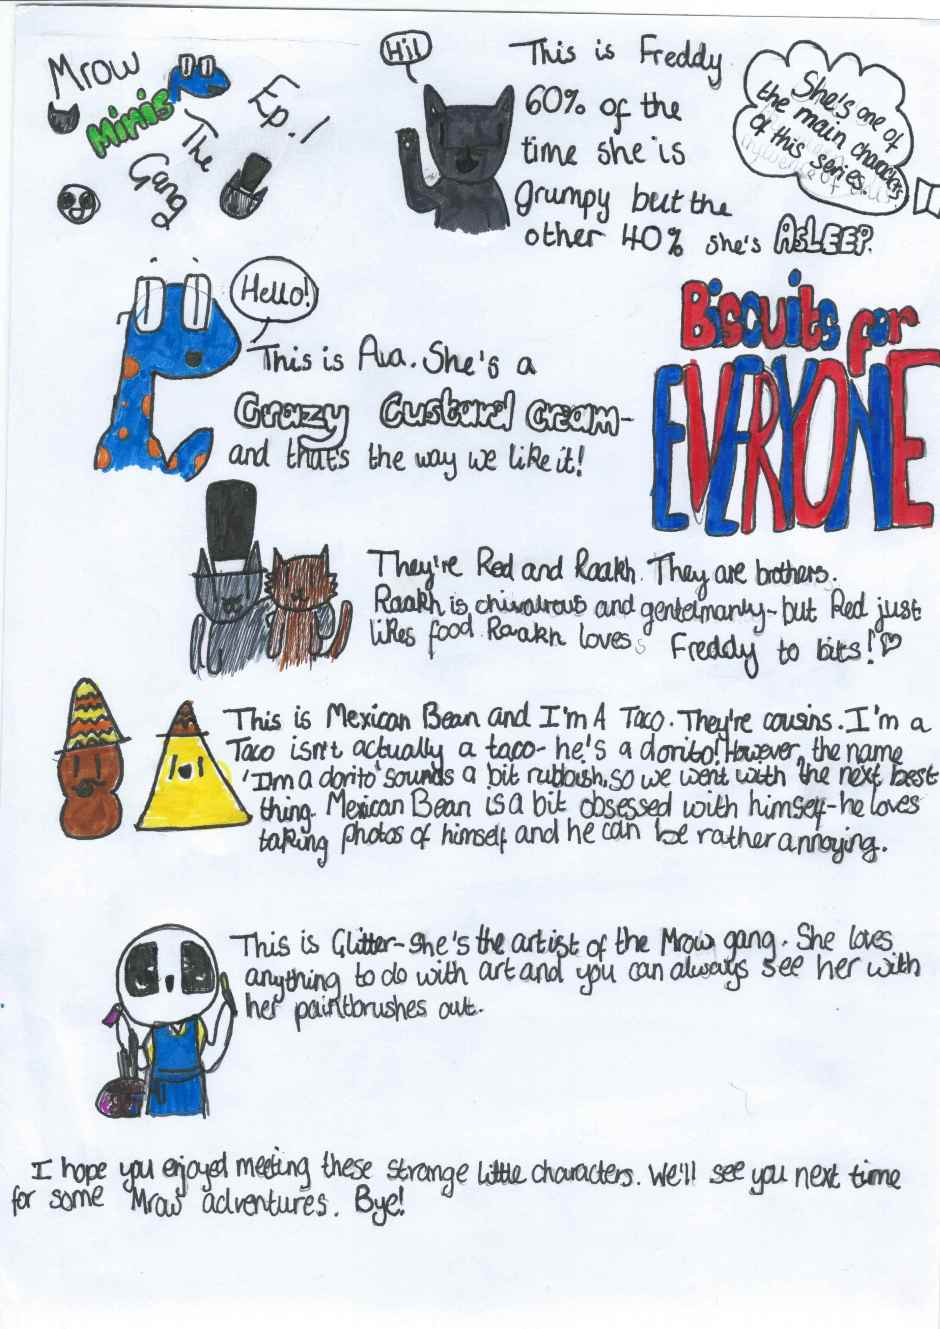 Mrow
Minis
The
Gang
Ep. 1
Hi!
This is Freddy
60% of the
time she is
grumpy but the
other 40% she's ASLEEP.
She's one of
the main characters
of this series.
Hello!
This is Ava. She's a
Crazy Custard Cream-
and that's the way we like it!
Biscuits for
EVERYONE
They're Red and Raakh. They are brothers.
Raakh is chivalrous and gentelmanly-but Red just
likes food. Raakh loves Freddy to bits!♡
This is Mexican Bean and I'm A Taco. They're cousins. I'm a
Taco isn't actually a taco- he's a dorito! However, the name
'I'm a dorito' sounds a bit rubbish, so we went with the next best
thing. Mexican Bean is a bit obsessed with himself-he loves
taking photos of himself and he can be rather annoying.
This is Glitter-She's the artist of the Mrow gang. She loves
anything to do with art and you can always see her with
her paintbrushes out.
I hope you enjoyed meeting these strange little characters. We'll see you next time
for some Mrow adventures. Bye!